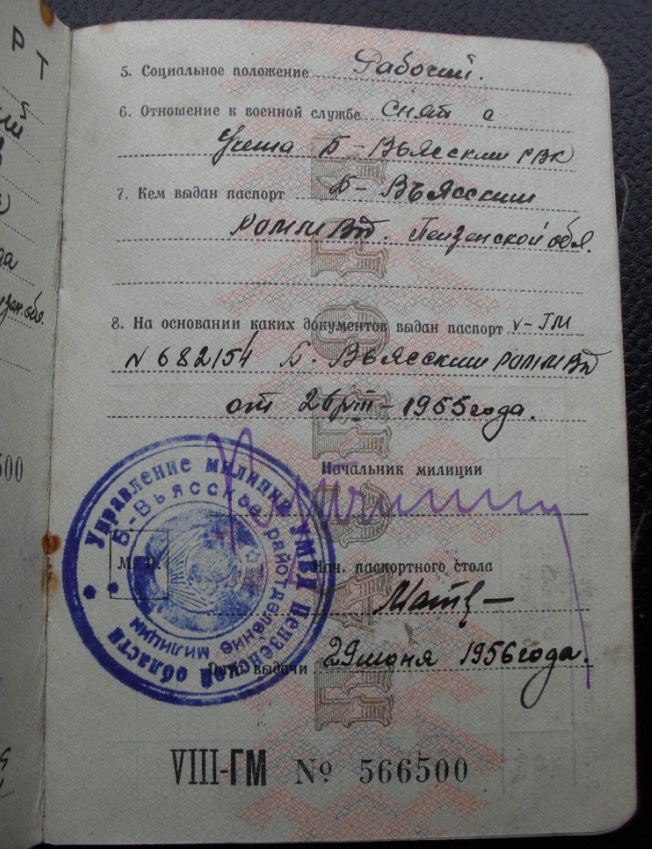 РТ
5. Социальное положение Рабочий.
6. Отношение к военной службе снят с
Учета Б-Вьясским РВК
7. Кем выдан паспорт Б-Вьясским
РОМ МВД. Пензенской обл.
8. На основании каких документов выдан паспорт V-ГМ
N 682154 Б. Вьясским РОМ МВД
от 26/VIII-1955 года.
Начальник милиции
Нач. паспортного стола
М. П.
Управление милиции УМВД Пензенской области
Б-Вьясское райотделение милиции
Дата выдачи 29 июня 1956 года.
VIII-ГМ № 566500
500